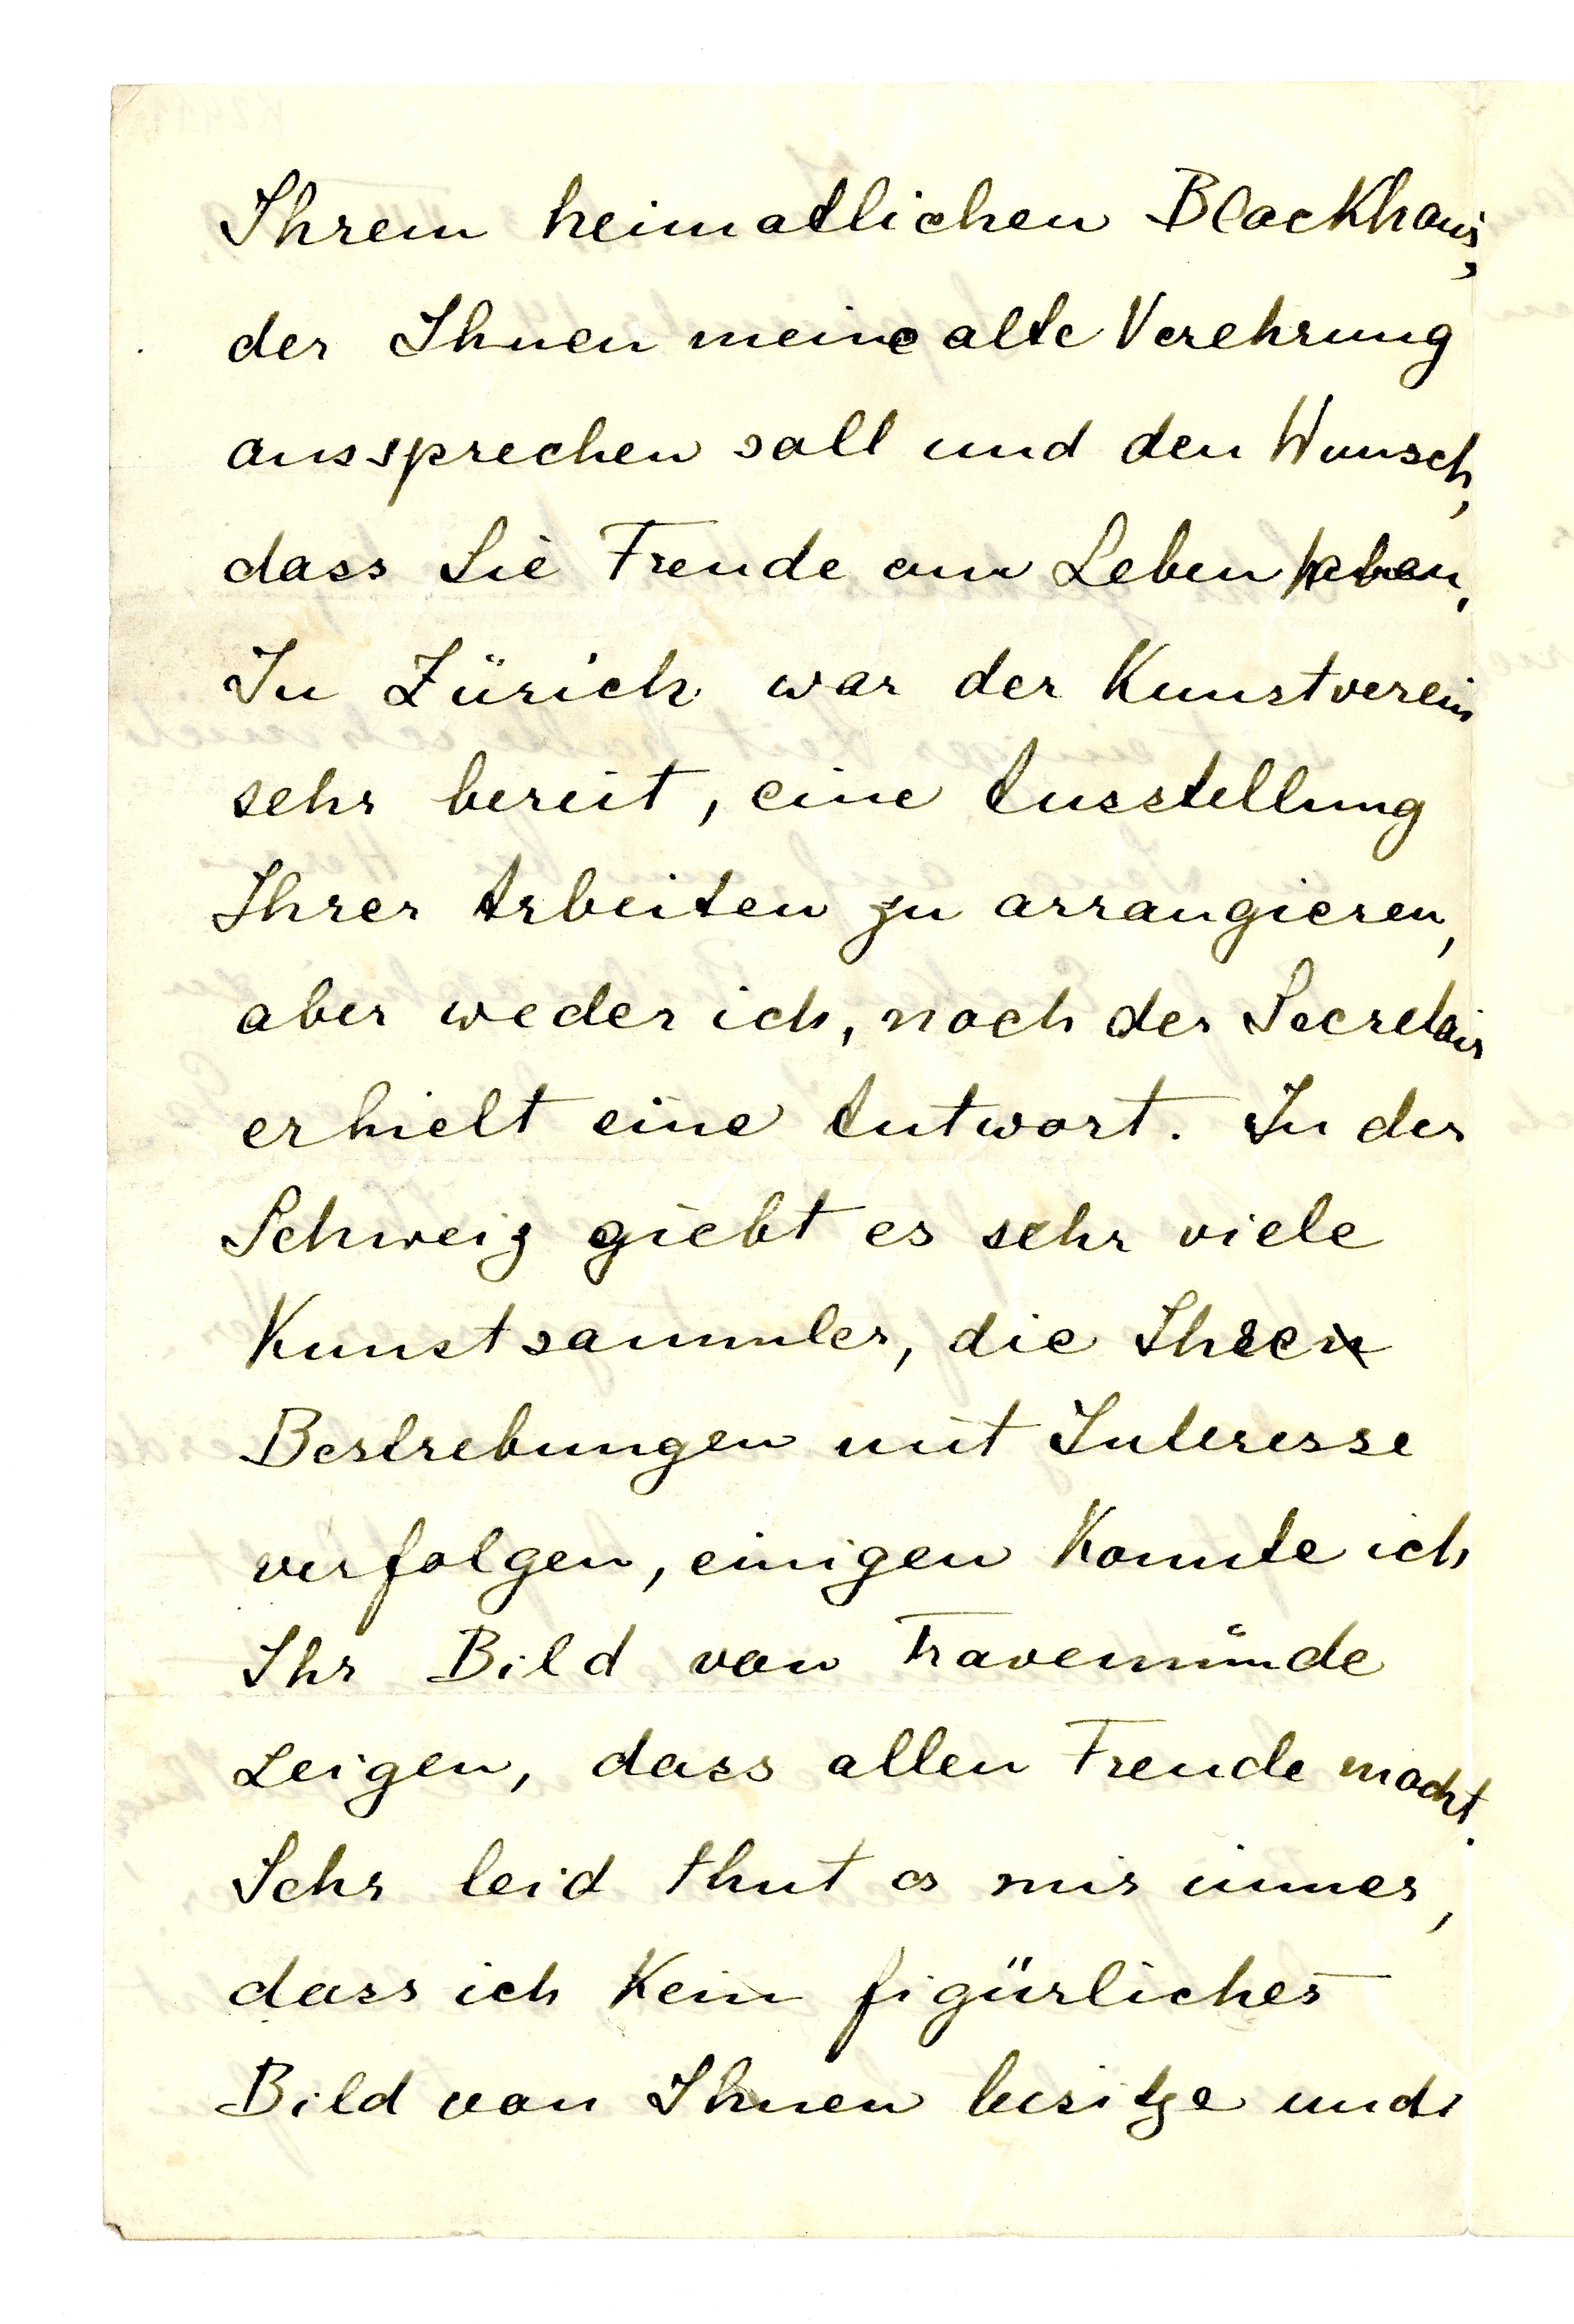 Ihrem heimatlichen Blockhaus,
der Ihnen meine alte Verehrung
aussprechen soll und den Wunsch,
dass Sie Freude am Leben haben.
In Zürich war der Kunstverein
sehr bereit, eine Ausstellung
Ihrer Arbeiten zu arrangieren,
aber weder ich, noch der Secretair
erhielt eine Antwort. In der
Schweiz giebt es sehr viele
Kunstsammler, die Ihre
Bestrebungen mit Interesse
verfolgen, einigen konnte ich
Ihr Bild von Travemünde
zeigen, dass allen Freude macht.
Sehr leid thut es mir immer,
dass ich kein figürliches
Bild von Ihnen besitze und